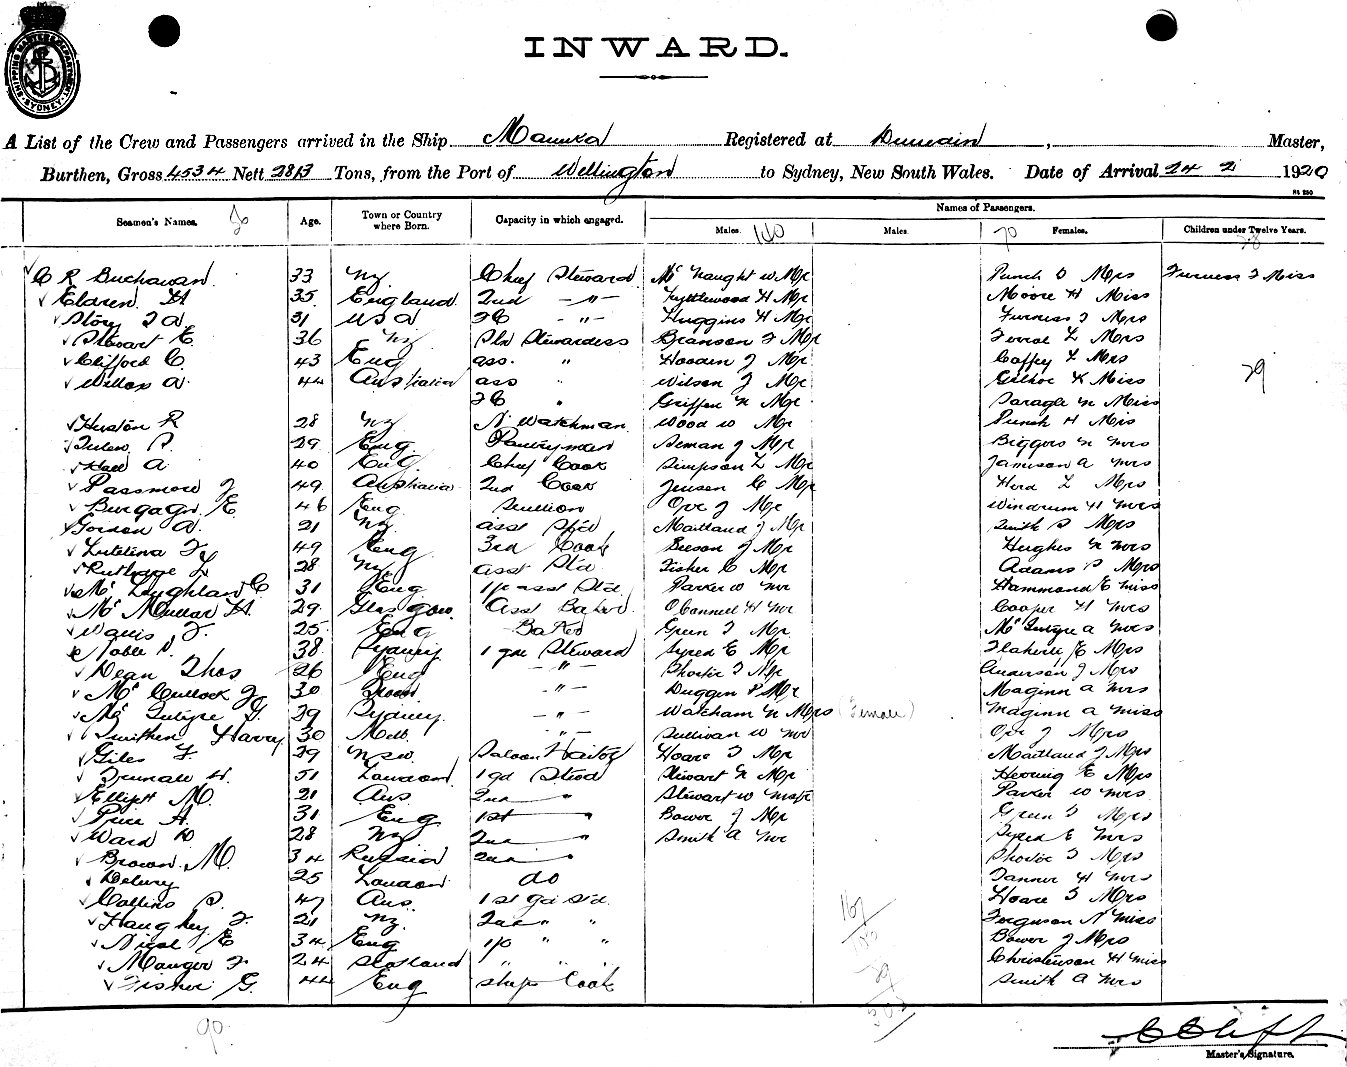 SHIPPING MASTERS DEPARTMENT SYDNEY
INWARD.
A List of the Crew and Passengers arrived in the Ship Manuka Registered at Dunedin, Master,
Burthen, Gross 4534 Nett 2813 Tons, from the Port of Wellington to Sydney, New South Wales. Date of Arrival 24 2 1920
Seamen's Names. Age. Town or Country where Born. Capacity in which engaged. Names of Passengers.
Males. 140 Males 70 Females. Children under Twelve Years.
C R Buchanan 33 NZ Chief Steward Mc Naught W Mr Punch O Mrs Furness J Miss
Eldren H 35 England 2nd -"- Lyttlewood H Mr Moore H Miss
Story J A 31 USA 2C -"- Huggins H Mr Furness J Mrs
Stewart E 36 NZ Stewardess Branson F Mr L Mrs
Clifford C 43 Eng ass. " J Mr Caffey L Mrs
Wilton A 44 Australia ass " Wilson J Mr K Miss 29
2C " Griffen N Mr N Miss
Huston R 28 NZ N Watchman Wood W Mr Punch H Miss
P. 29 Eng Pantryman Seman J Mr Biggers N Mrs
Hall A 40 Eng Chief Cook Simpson L Mr Jamison A Mrs
Passmore J 49 Australia 2nd Cook Jensen C Mr Herd L Mrs
E. 46 Eng Scullion Orr J Mr Windrum H Mrs
Gordon A. 21 NZ asst Std Maitland J Mr Smith S Mrs
49 Eng 3rd Cook Beeson J Mr Hughes N Mrs
L 28 NZ asst Std Fisher C Mr Adams S Mrs
Mc Laughlan C 31 Eng 1/p asst Std Parker W Mr Hammond E Miss
Mc H. 29 Glasgow Asst Baker O'Connell H Mr Cooper H Mrs
Wallis J. 25 Eng Baker Green J Mr Mc Intyre A Mrs
Noble 38 Sydney 1 gde Steward Syred E Mr Flaherty E Mrs
Dean Thos 26 Eng -"- J Mr Anderson J Mrs
Mc Cullock 30 -"- Duggin P Mr Maginn A Mrs
Mc Intyre G. 29 Sydney -"- Watcham N Mrs (Female) Maginn A Miss
Harry 30 Melb. -"- Sullivan W Mr Orr J Mrs
Giles F. 29 NSW Saloon Waiter Hoare J Mr Maitland J Mrs
W. 51 London 1 gd Stwd Stewart N Mr E Mrs
Elliott M. 21 Aus 2nd " Stewart W Mstr Parker W Mrs
Price A. 31 Eng 1st " Bower J Mr Green J Mrs
Ward D 28 NZ 2nd " Smith A Mr Syred E Mrs
Brown M. 34 Russia 2nd " J Mrs
Delury 25 London do Tanner H Mrs
Collins P. 47 Aus 1st gd Std. Hoare J Mrs
Haughey F. 21 NZ 2nd " " 167 Ferguson N Miss
Nicol E 34 Eng 1/p " " Bower J Mrs
Manger F 24 Scotland " " " Christenson H Miss
Fisher G. 44 Eng ships Cook Smith A Mrs
90.
Master's Signature.